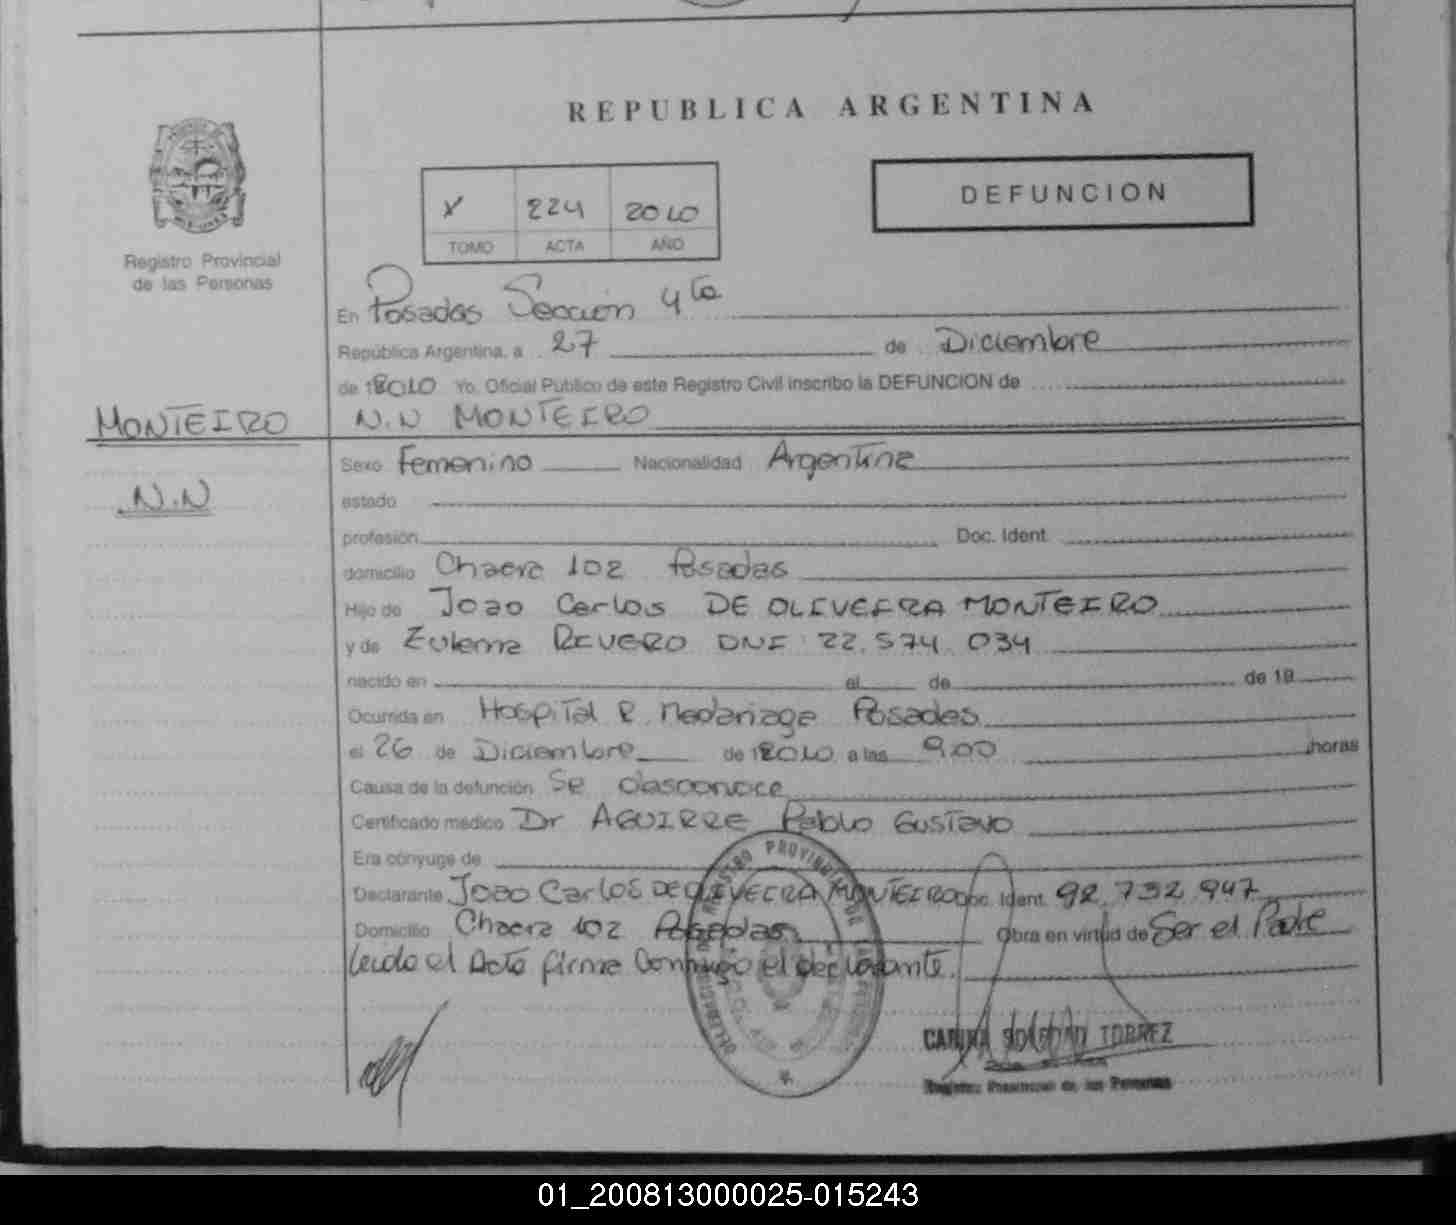 REPUBLICA ARGENTINA
DEFUNCION
224 2010
TOMO ACTA AÑO
Registro Provincial
de las Personas
En Posadas Sección 4ta
República Argentina, a 27 de Diciembre
de 2010 Yo. Oficial Publico de este Registro Civil inscribo la DEFUNCION de
MONTEIRO
N.N MONTEIRO
N.N
Sexo Femenino Nacionalidad Argentina
estado
profesión Doc. Ident.
domicilio Chacra 102 Posadas
Hijo de Joao Carlos DE OLIVEIRA MONTEIRO
y de Zulema RIVERO DNI 22.574.034
nacido en el de de 19
Ocurrida en Hospital R. Madariaga Posadas
el 26 de Diciembre de 2010 a las 9.00 horas
Causa de la defunción Se desconoce
Certificado médico Dr AGUIRRE Pablo GUSTAVO
Era cónyuge de
Declarante Joao Carlos DE OLIVEIRA MONTEIRO Doc. Ident. 92.732.947
Domicilio Chacra 102 Posadas Obra en virtud de Ser el Padre
Leido el Acta firma Conmigo el declarante.
REGISTRO PROVINCIAL DE LAS PERSONAS
CARINA SOLEDAD TORREZ
Registro Provincial de las Personas
01_200813000025-015243